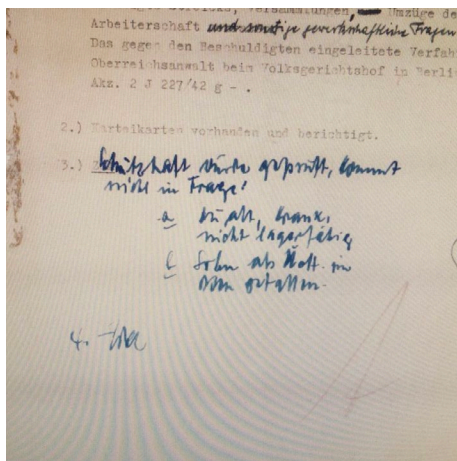 Versammlungen, Umzüge de
Arbeiterschaft und sonstige gewerkschaftliche Fragen
Das gegen den Beschuldigten eingeleitete Verfah
Oberreichsanwalt beim Volksgerichtshof in Berli
Akz. 2 J 227/42 g - .
2.) Karteikarten vorhanden und berichtigt.
3.) Schutzhaft wurde geprüft, kommt
nicht in Frage:
a zu alt, krank,
nicht lagerfähig
b Sohn als in
Osten gefallen.
4.